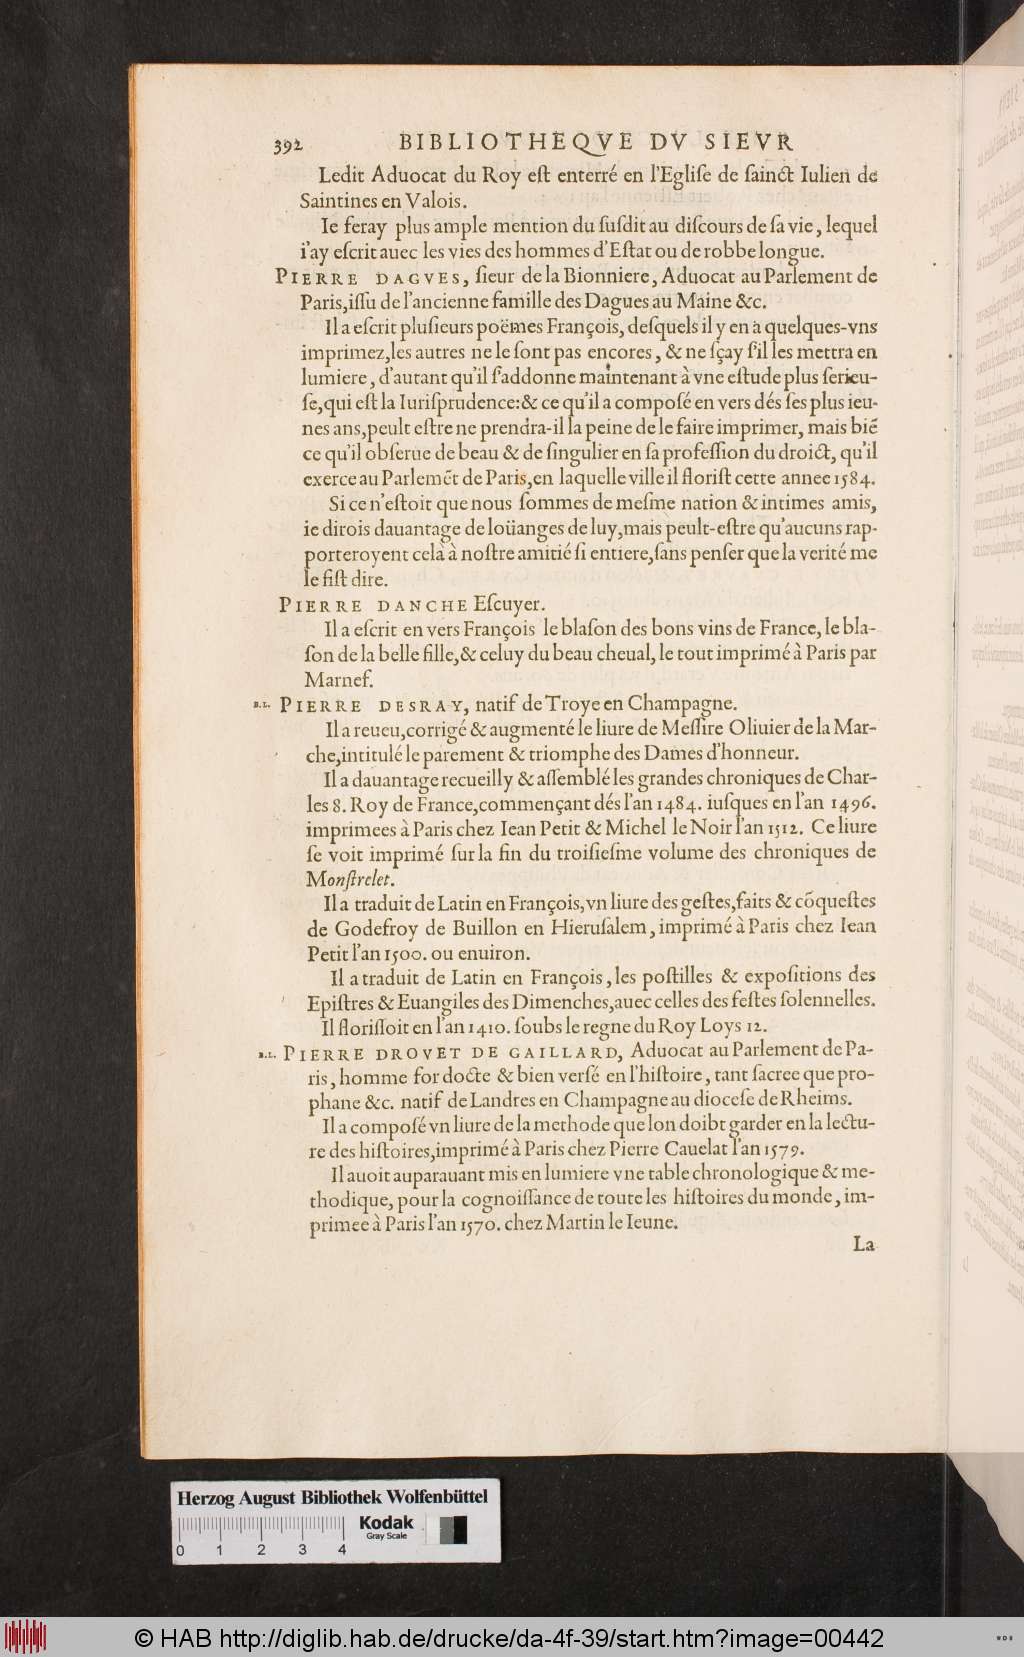 392 BIBLIOTHEQVE DV SIEVR
Ledit Aduocat du Roy eſt enterré en l'Egliſe de ſainct Iulien de
Saintines en Valois.
Ie feray plus ample mention du ſuſdit au diſcours de ſa vie, lequel
i'ay eſcrit auec les vies des hommes d'Eſtat ou de robbe longue.
PIERRE DAGVES, ſieur de la Bionniere, Aduocat au Parlement de
Paris, iſſu de l'ancienne famille des Dagues au Maine &c.
Il a eſcrit pluſieurs poëmes François, deſquels il y en a quelques-vns
imprimez, les autres ne le ſont pas encores, & ne ſçay ſ'il les mettra en
lumiere, d'autant qu'il ſ'addonne maintenant à vne eſtude plus ſerieu-
ſe, qui eſt la Iuriſprudence: & ce qu'il a compoſé en vers dés ſes plus ieu-
nes ans, peult eſtre ne prendra-il la peine de le faire imprimer, mais biē
ce qu'il obſerue de beau & de ſingulier en ſa profeſſion du droict, qu'il
exerce au Parlemēt de Paris, en laquelle ville il floriſt cette annee 1584.
Si ce n'eſtoit que nous ſommes de meſme nation & intimes amis,
ie dirois dauantage de loüanges de luy, mais peult-eſtre qu'aucuns rap-
porteroyent celà à noſtre amitié ſi entiere, ſans penſer que la verité me
le fiſt dire.
PIERRE DANCHE Eſcuyer.
Il a eſcrit en vers François le blaſon des bons vins de France, le bla-
ſon de la belle fille, & celuy du beau cheual, le tout imprimé à Paris par
Marnef.
B.L. PIERRE DESRAY, natif de Troye en Champagne.
Il a reueu, corrigé & augmenté le liure de Meſſire Oliuier de la Mar-
che, intitulé le parement & triomphe des Dames d'honneur.
Il a dauantage recueilly & aſſemblé les grandes chroniques de Char-
les 8. Roy de France, commençant dés l'an 1484. iuſques en l'an 1496.
imprimees à Paris chez Iean Petit & Michel le Noir l'an 1512. Ce liure
ſe voit imprimé ſur la fin du troiſieſme volume des chroniques de
Monſtrelet.
Il a traduit de Latin en François, vn liure des geſtes, faits & cōqueſtes
de Godefroy de Buillon en Hieruſalem, imprimé à Paris chez Iean
Petit l'an 1500. ou enuiron.
Il a traduit de Latin en François, les poſtilles & expoſitions des
Epiſtres & Euangiles des Dimenches, auec celles des feſtes ſolennelles.
Il floriſſoit en l'an 1410. ſoubs le regne du Roy Loys 12.
B.L. PIERRE DROVET DE GAILLARD, Aduocat au Parlement de Pa-
ris, homme for docte & bien verſé en l'hiſtoire, tant ſacree que pro-
phane &c. natif de Landres en Champagne au dioceſe de Rheims.
Il a compoſé vn liure de la methode que lon doibt garder en la lectu-
re des hiſtoires, imprimé à Paris chez Pierre Cauelat l'an 1579.
Il auoit auparauant mis en lumiere vne table chronologique & me-
thodique, pour la cognoiſſance de toute les hiſtoires du monde, im-
primee à Paris l'an 1570. chez Martin le Ieune.
La
Herzog August Bibliothek Wolfenbüttel
Kodak
Gray Scale
0 1 2 3 4
© HAB http://diglib.hab.de/drucke/da-4f-39/start.htm?image=00442